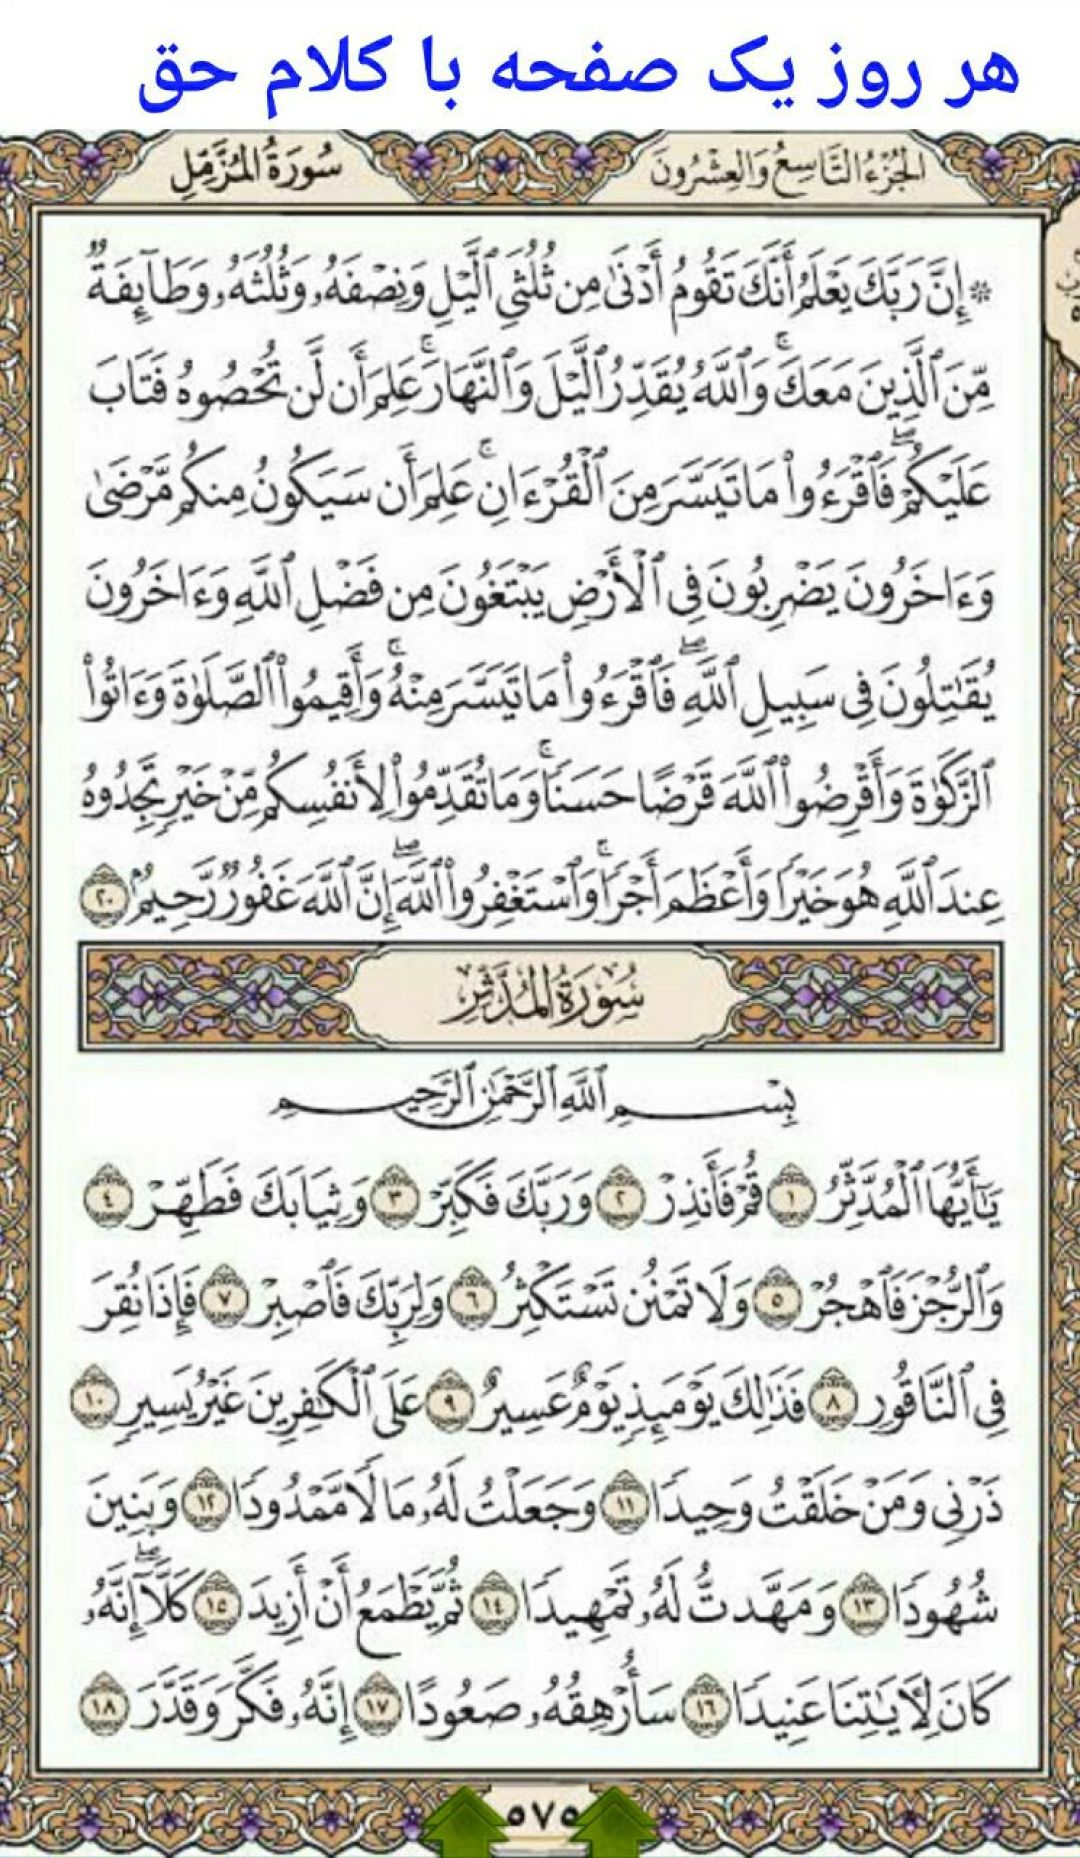 هر روز یک صفحه با کلام حق
الجُزْءُ التَّاسِعُ وَالعِشْرُونَ
سُورَةُ المُزَّمِّل
۞ إِنَّ رَبَّكَ يَعْلَمُ أَنَّكَ تَقُومُ أَدْنَىٰ مِن ثُلُثَيِ ٱلَّيْلِ وَنِصْفَهُۥ وَثُلُثَهُۥ وَطَآئِفَةٌ
مِّنَ ٱلَّذِينَ مَعَكَۚ وَٱللَّهُ يُقَدِّرُ ٱلَّيْلَ وَٱلنَّهَارَۚ عَلِمَ أَن لَّن تُحْصُوهُ فَتَابَ
عَلَيْكُمْۖ فَٱقْرَءُوا۟ مَا تَيَسَّرَ مِنَ ٱلْقُرْءَانِۚ عَلِمَ أَن سَيَكُونُ مِنكُم مَّرْضَىٰ
وَءَاخَرُونَ يَضْرِبُونَ فِى ٱلْأَرْضِ يَبْتَغُونَ مِن فَضْلِ ٱللَّهِ وَءَاخَرُونَ
يُقَٰتِلُونَ فِى سَبِيلِ ٱللَّهِۖ فَٱقْرَءُوا۟ مَا تَيَسَّرَ مِنْهُۚ وَأَقِيمُوا۟ ٱلصَّلَوٰةَ وَءَاتُوا۟
ٱلزَّكَوٰةَ وَأَقْرِضُوا۟ ٱللَّهَ قَرْضًا حَسَنًاۚ وَمَا تُقَدِّمُوا۟ لِأَنفُسِكُم مِّنْ خَيْرٍ تَجِدُوهُ
عِندَ ٱللَّهِ هُوَ خَيْرًا وَأَعْظَمَ أَجْرًاۚ وَٱسْتَغْفِرُوا۟ ٱللَّهَۖ إِنَّ ٱللَّهَ غَفُورٌ رَّحِيمٌۢ ٢٠
سُورَةُ المُدَّثِّرِ
بِسْمِ ٱللَّهِ ٱلرَّحْمَٰنِ ٱلرَّحِيمِ
يَٰٓأَيُّهَا ٱلْمُدَّثِّرُ ١ قُمْ فَأَنذِرْ ٢ وَرَبَّكَ فَكَبِّرْ ٣ وَثِيَابَكَ فَطَهِّرْ ٤
وَٱلرُّجْزَ فَٱهْجُرْ ٥ وَلَا تَمْنُن تَسْتَكْثِرُ ٦ وَلِرَبِّكَ فَٱصْبِرْ ٧ فَإِذَا نُقِرَ
فِى ٱلنَّاقُورِ ٨ فَذَٰلِكَ يَوْمَئِذٍ يَوْمٌ عَسِيرٌ ٩ عَلَى ٱلْكَٰفِرِينَ غَيْرُ يَسِيرٍ ١٠
ذَرْنِى وَمَنْ خَلَقْتُ وَحِيدًا ١١ وَجَعَلْتُ لَهُۥ مَالًا مَّمْدُودًا ١٢ وَبَنِينَ
شُهُودًا ١٣ وَمَهَّدتُّ لَهُۥ تَمْهِيدًا ١٤ ثُمَّ يَطْمَعُ أَنْ أَزِيدَ ١٥ كَلَّآۖ إِنَّهُۥ
كَانَ لِءَايَٰتِنَا عَنِيدًا ١٦ سَأُرْهِقُهُۥ صَعُودًا ١٧ إِنَّهُۥ فَكَّرَ وَقَدَّرَ ١٨
٥٧٥